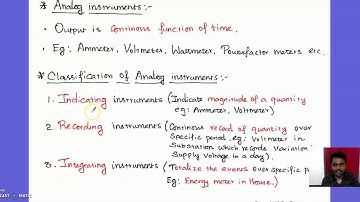 * Analog instruments :-
• Output is continous function of time.
• Eg: Ammeter, Voltmeter, Wattmeter, Powerfactor meters etc.
* Classification of Analog instruments :-
1. Indicating instruments (Indicate magnitude of a quantity
eg: Ammeter, Voltmeter)
2. Recording instruments (Continous record of quantity over
Specific period, eg: Voltmeter in
Substation which regords Variation
Supply Voltage in a day).
3. Integrating instruments (Totalize the events over Specific p
Eg: Energy meter in House.)